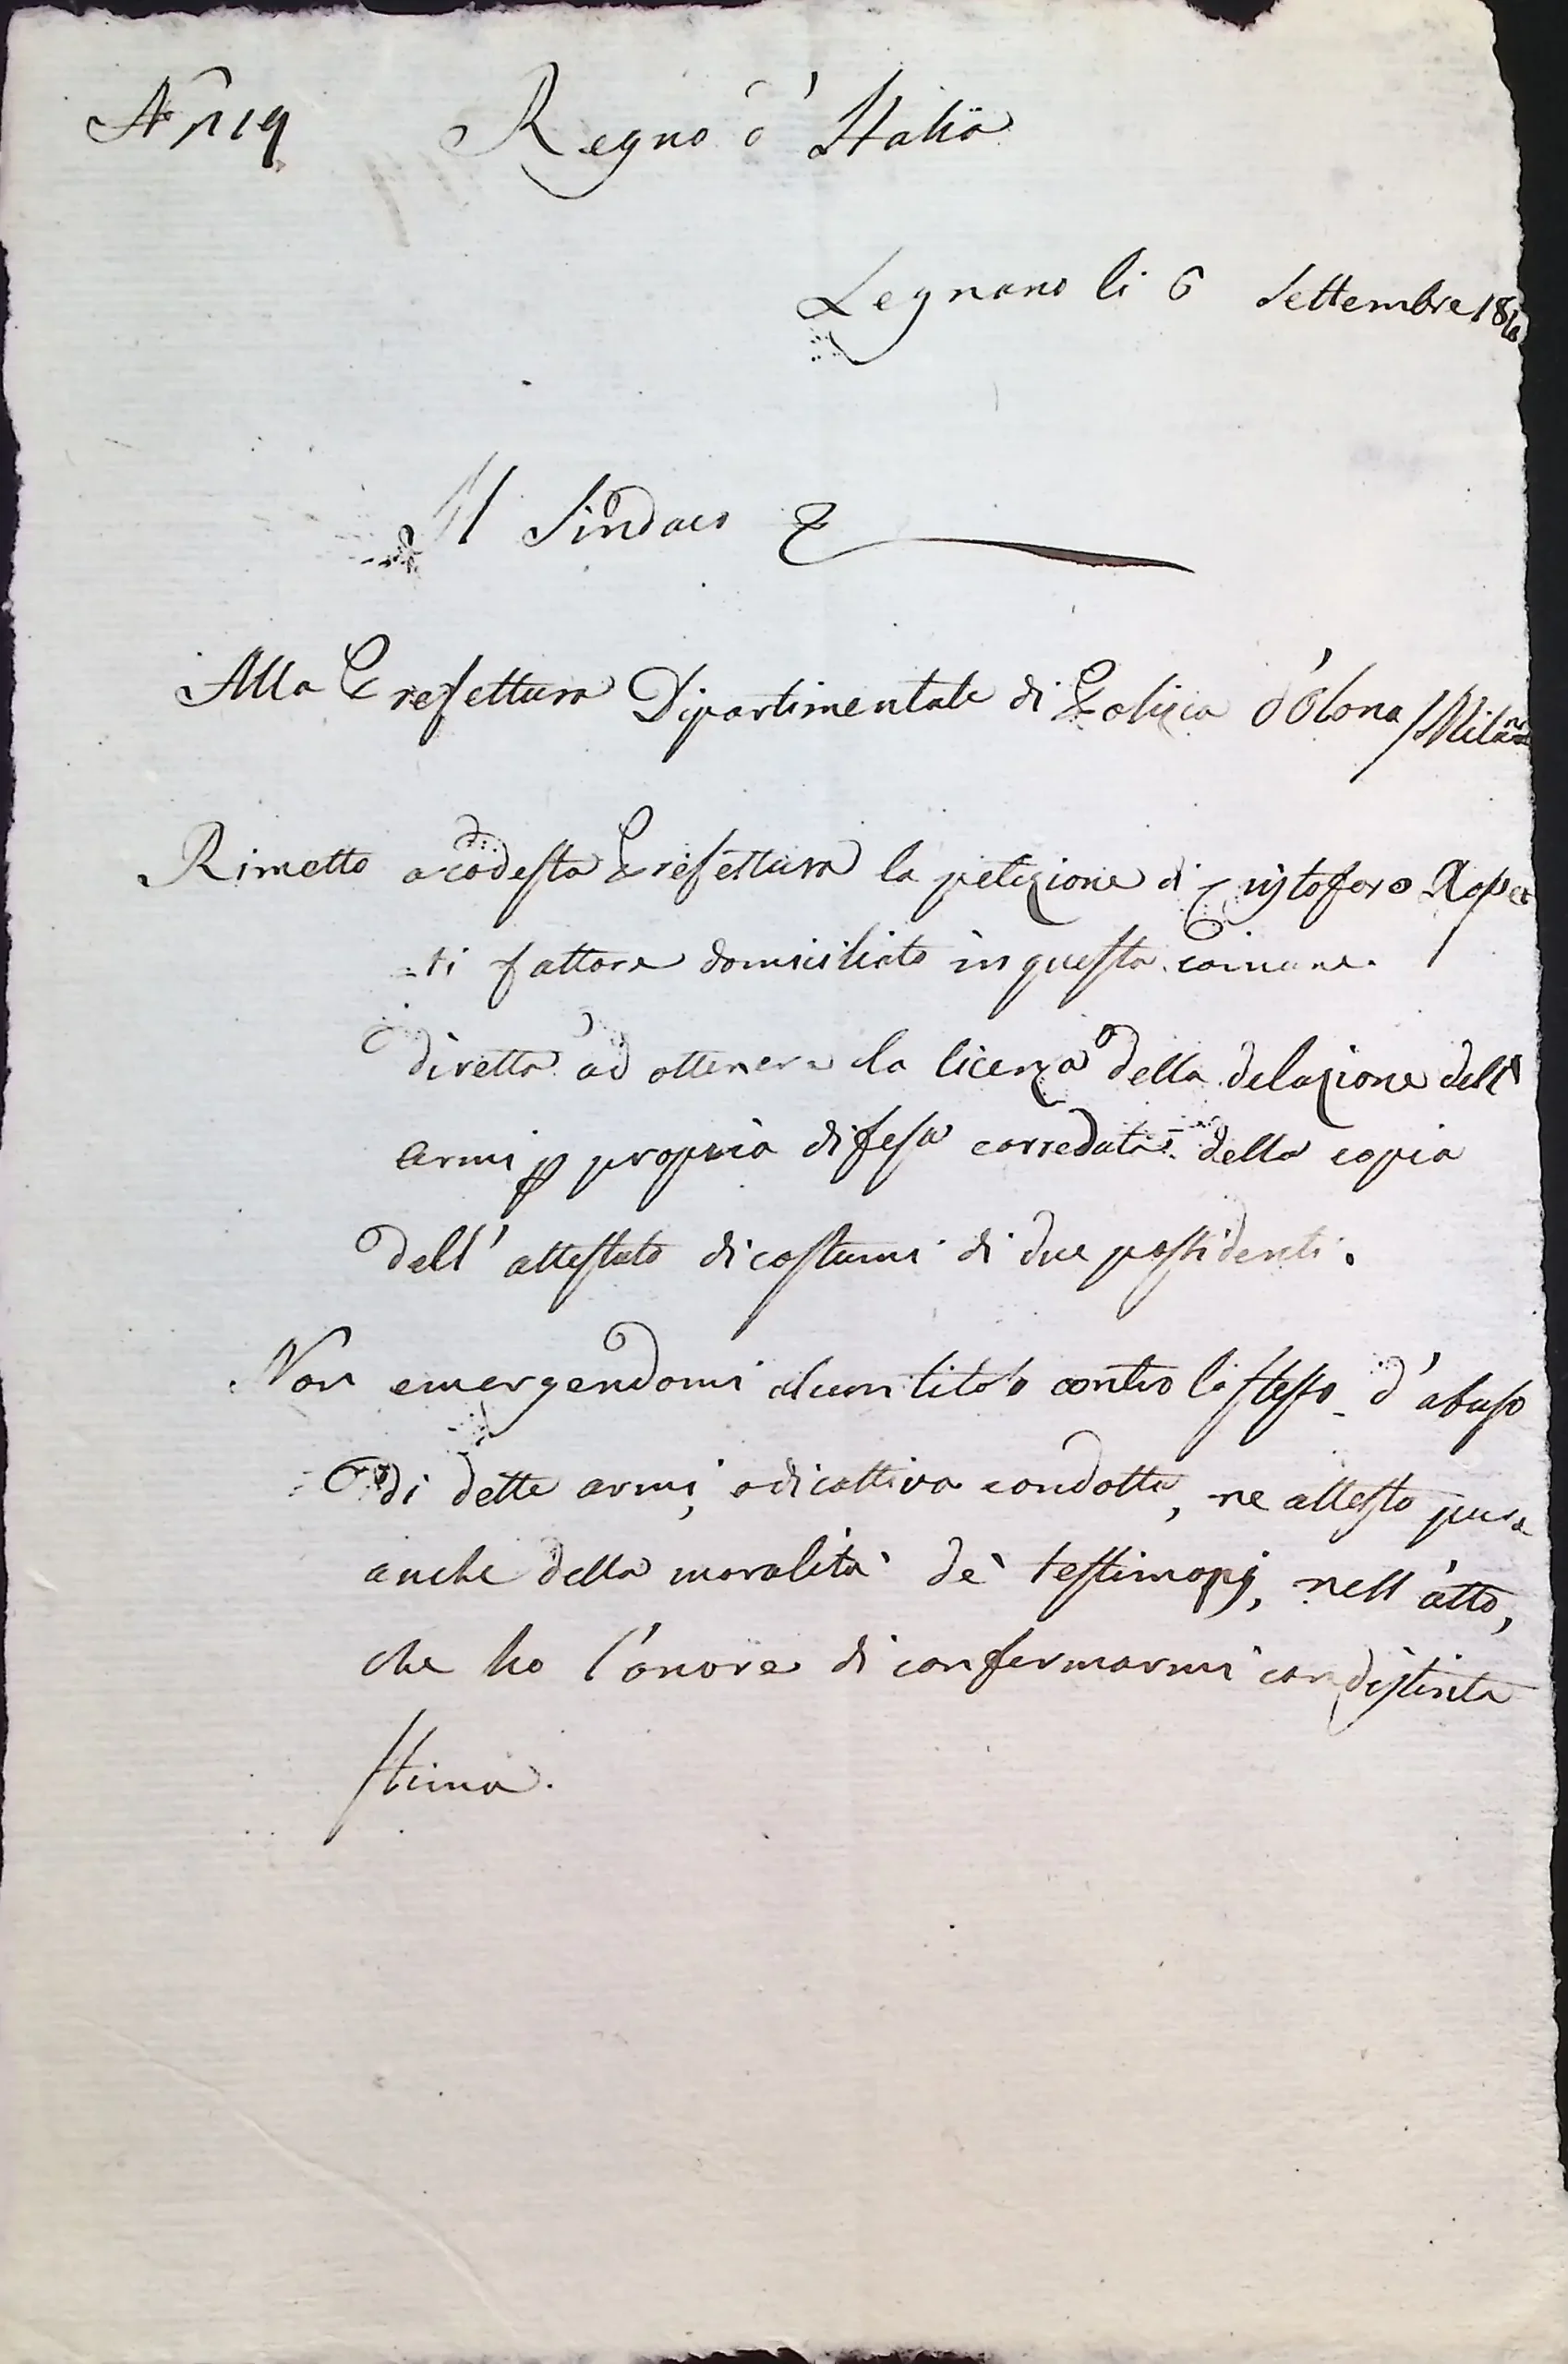 N° 119 Regno d'Italia
Legnano li 6 Settembre 1810
Il Sindaco
Alla Prefettura Dipartimentale di Polizia d'Olona / Milano
Rimetto a codesta Prefettura la petizione di Cristoforo
-ti fattore domiciliato in questa comune.
diretta ad ottenere la licenza della delazione dell'
armi p propria difesa corredata della copia
dell'attestato di costumi di due possidenti.
Non emergendomi alcun titolo contro lo stesso d'abuso
di dette armi, o di cattiva condotta, ne attesto pure
anche della moralità de' testimonj, nell'atto,
che ho l'onore di confermarmi con distinta
stima.